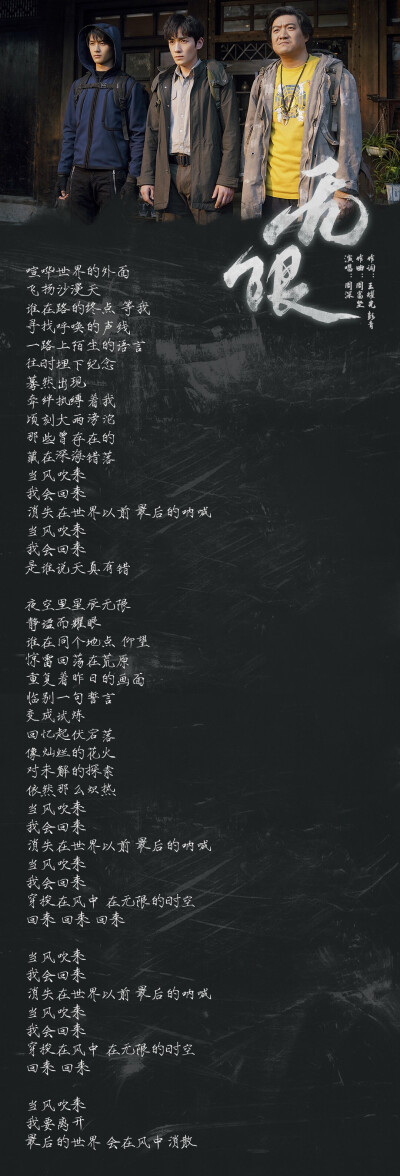 无限
作词：王耀光
作曲：
演唱：周深
喧哗世界的外面
飞扬沙漫天
谁在路的终点 等我
寻找呼唤的声线
一路上陌生的语言
往时埋下纪念
蓦然出现
牵绊执缚着我
顷刻大雨滂沱
那些曾存在的
藏在深海错落
当风吹来
我会回来
消失在世界以前 最后的呐喊
当风吹来
我会回来
是谁说天真有错
夜空里星辰无限
静谧而耀眼
谁在同个地点 仰望
惊雷回荡在荒原
重复着昨日的画面
临别一句誓言
变成试炼
回忆起伏宕落
像灿烂的花火
对未解的探索
依然那么炽热
当风吹来
我会回来
消失在世界以前 最后的呐喊
当风吹来
我会回来
穿梭在风中 在无限的时空
回来 回来 回来
当风吹来
我会回来
消失在世界以前 最后的呐喊
当风吹来
我会回来
穿梭在风中 在无限的时空
回来 回来
当风吹来
我要离开
最后的世界 会在风中 消散